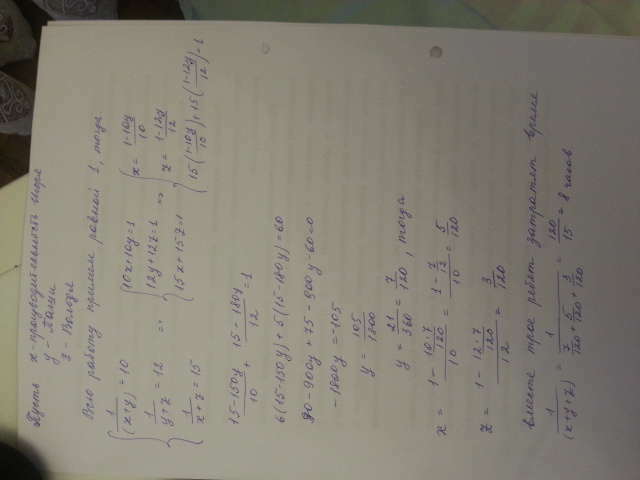 Пусть x - производительность Игоря
y - Паши
z - Володи
Всю работу примем равной 1, тогда
{ 1/(x+y) = 10 { 10x+10y=1 { x = (1-10y)/10
{ 1/(y+z) = 12 => { 12y+12z=1 => { z = (1-12y)/12
{ 1/(x+z) = 15 { 15x+15z=1 { 15((1-10y)/10)+15((1-12y)/12)=1
(15-150y)/10 + (15-180y)/12 = 1
6(15-150y)+5(15-180y)=60
90-900y+75-900y-60=0
-1800y=-105
y = 105/1800
y = 21/360 = 7/120, тогда
x = (1 - (10·7)/120)/10 = (1 - 7/12)/10 = 5/120
z = (1 - (12·7)/120)/12 = 3/120
вместе трое ребят затратят время
1/(x+y+z) = 1/(7/120+5/120+3/120) = 120/15 = 8 часов